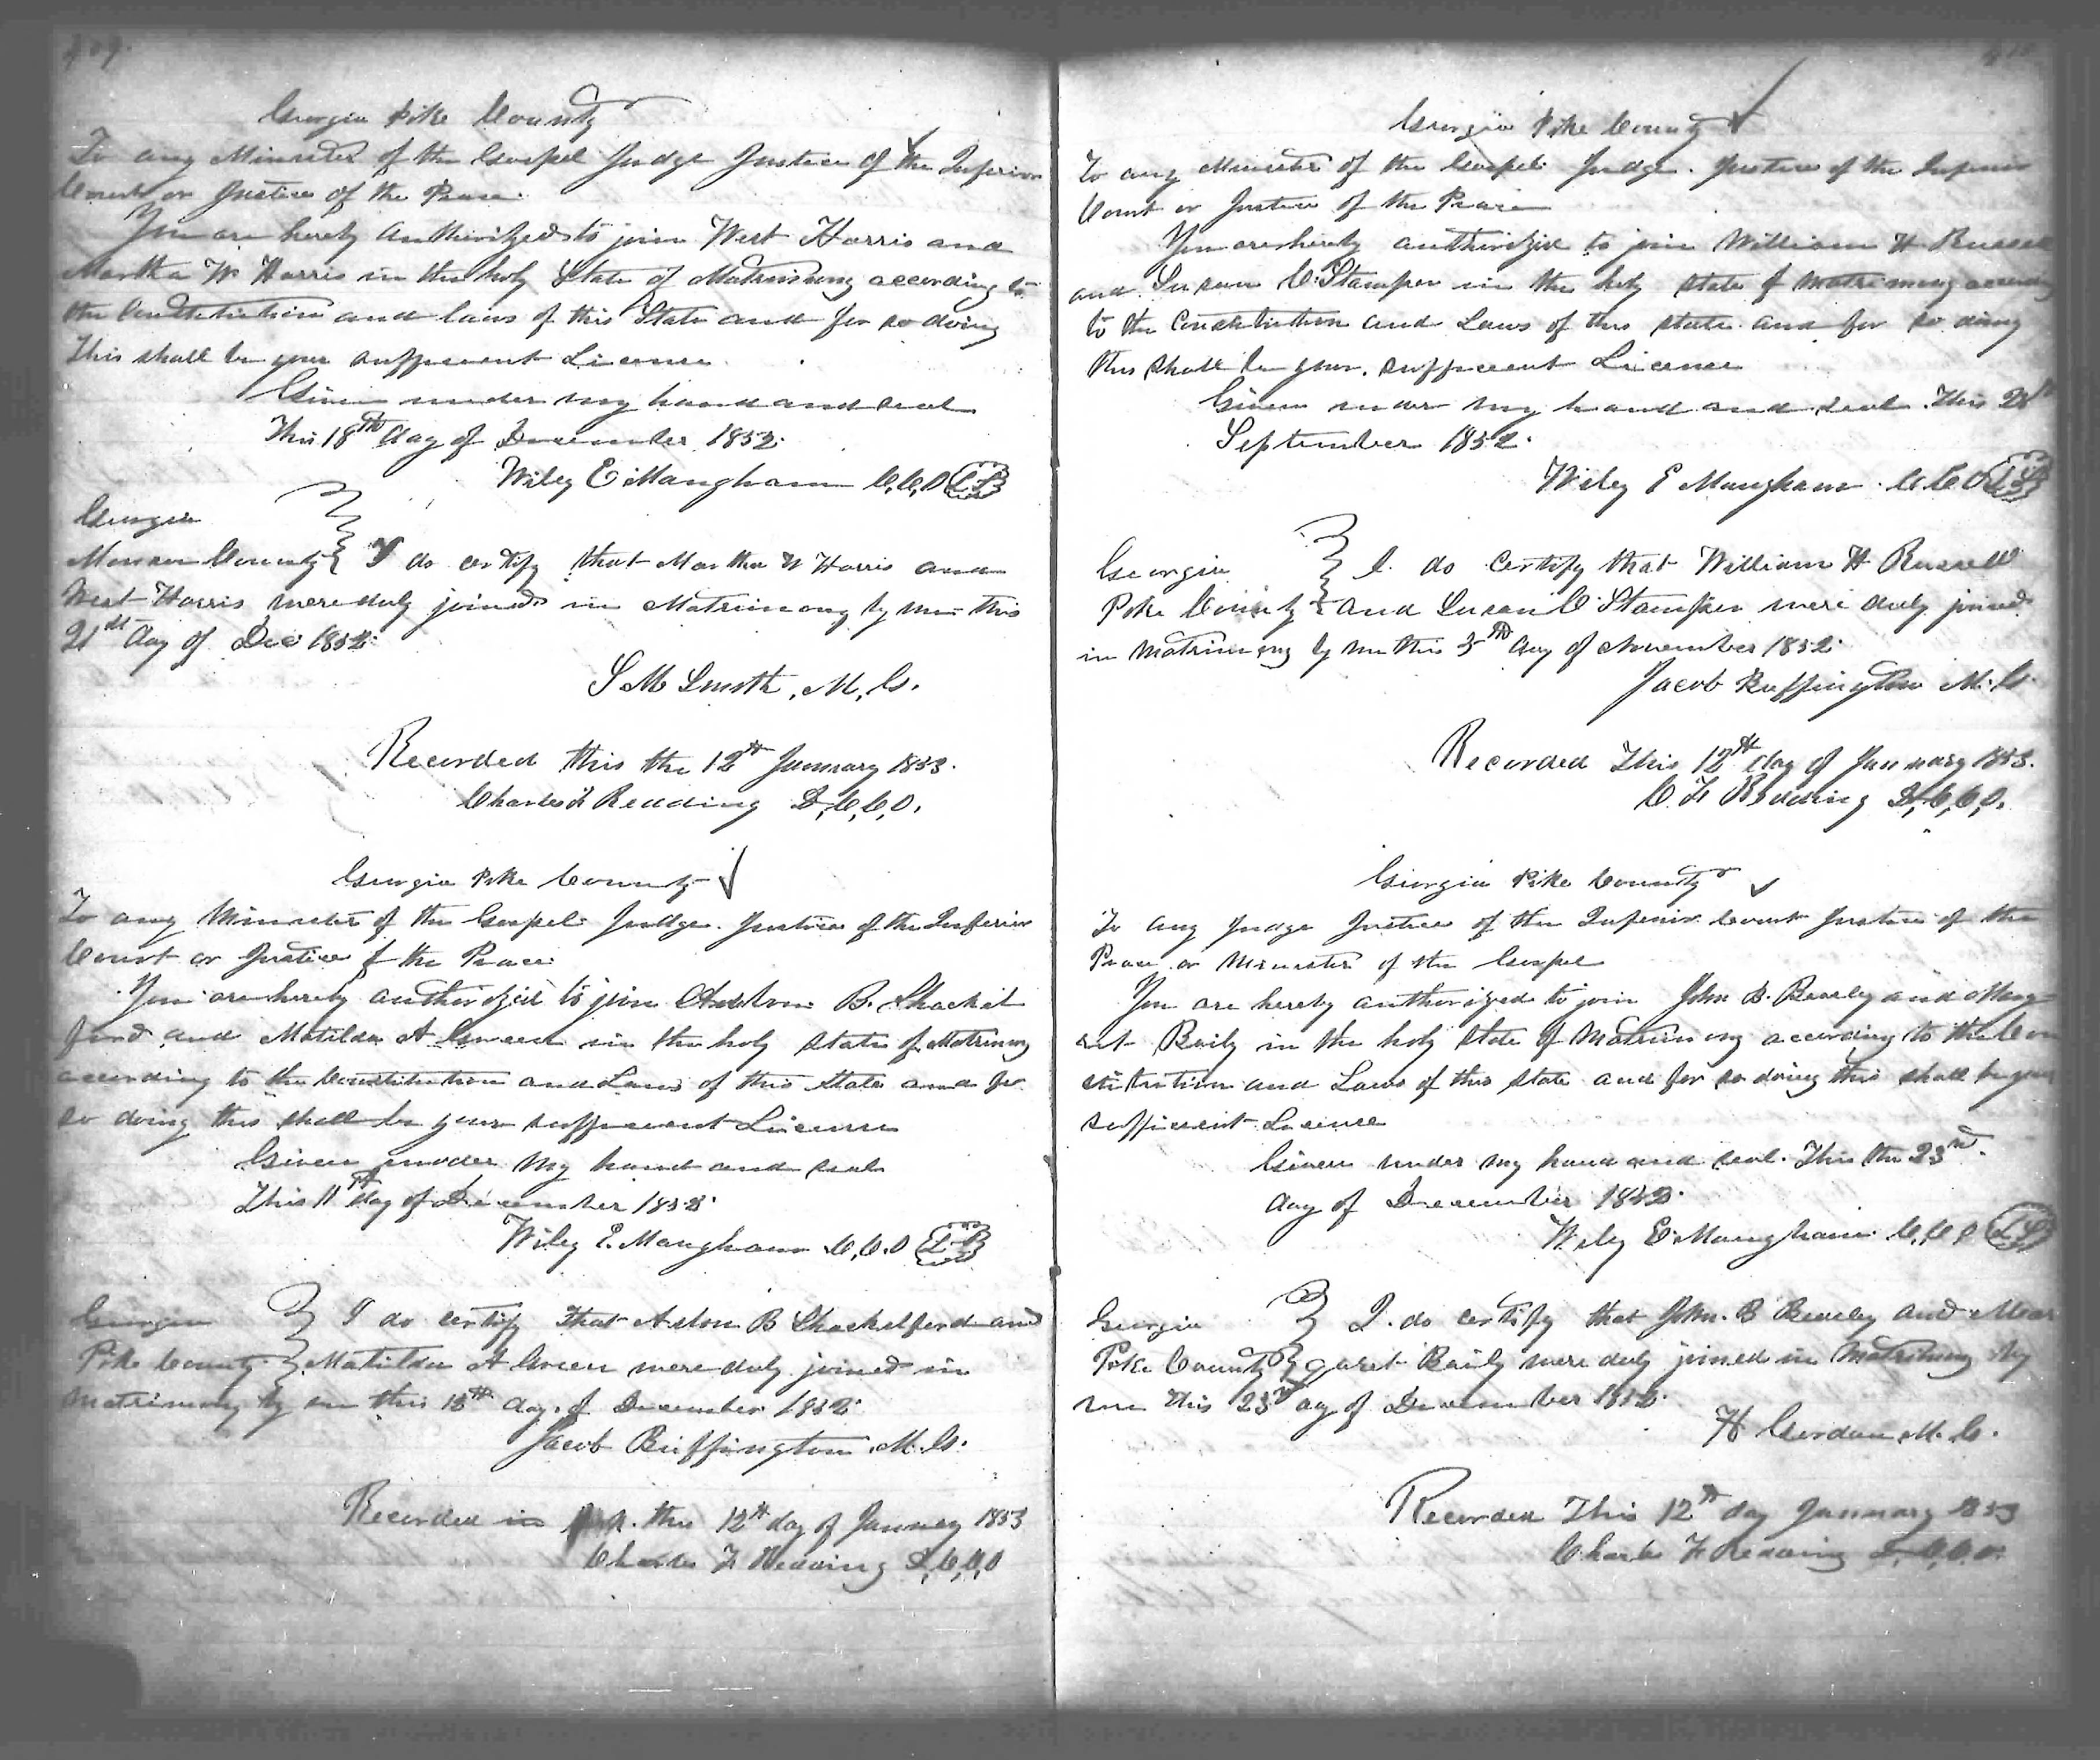 409.
Georgia Pike County
To any Minister of the Gospel Judge Justice of the Inferior
Court or Justice of the Peace
You are hereby authorized to join West Harris and
Martha W Harris in the holy State of Matrimony according to
the Constitution and laws of this State and for so doing
This shall be your sufficient License.
Given under my hand and seal
This 18th day of December 1852.
Wiley E Mangham C.C.O LS
Georgia
Monroe County I do certify that Martha W Harris and
West Harris were duly joined in Matrimony by me this
21st day of Dec 1852.
S M Smith, M, G.
Recorded this the 12th January 1853.
Charles F Redding D,C,C,O.
Georgia Pike County
To any Minister of the Gospel Judge. Justice of the Inferior
Court or Justice of the Peace
You are hereby authorized to join B. Shackel
ford and Matilda A Green in the holy state of Matrimony
according to the Constitution and Laws of this state and for
so doing this shall be your sufficient License
Given under my hand and seal
This 11th day of December 1852.
Wiley E. Mangham C.C.O LS
Georgia I do certify that B Shackelford and
Pike County Matilda A Green were duly joined in
matrimony by me this day of December 1852
Jacob Buffington M.G.
Recorded in this 12th day of January 1853
Charles F Redding D,C,C,O
Georgia Pike County
To any Minister of the Gospel Judge. Justice of the Inferior
Court or Justice of the Peace
You are hereby authorized to join William H Russell
and Susan C. Stamper in the holy state of matrimony according
to the Constitution and Laws of this state and for so doing
this shall be your sufficient License
Given under my hand and seal. This
September 1852.
Wiley E Mangham C.C.O LS
Georgia I do certify that William H Russell
Pike County and Susan C Stamper were duly joined
in matrimony by me this 5th day of November 1852.
Jacob Buffington M.G.
Recorded This 12th day of January 1853.
C. F Redding D,C,C,O.
Georgia Pike County
To any Judge Justice of the Inferior Court Justice of the
Peace or Minister of the Gospel
You are hereby authorized to join John B. Beasley and Marg
ret Baily in the holy state of Matrimony according to the Con
stitution and Laws of this state and for so doing this shall be your
sufficient License
Given under my hand and seal. This the 23rd.
day of December 1852.
Wiley E Mangham C.C.O LS
Georgia I do certify that John. B Beasley and Mar
Pike County garet Baily were duly joined in Matrimony by
me this 23rd day of December 1852.
H Gordan M. G.
Recorded This 12th day January 1853
Charles F Redding D,C,C,O.